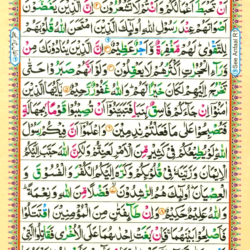 ان تحبط اعمالكم وانتم لا تشعرون ان الذين يغضون
اصواتهم عند رسول الله اولئك الذين امتحن الله قلوبهم
للتقوى لهم مغفرة واجر عظيم ان الذين ينادونك من
وراء الحجرت اكثرهم لا يعقلون ولو انهم صبروا حتى
تخرج اليهم لكان خيرا لهم والله غفور رحيم يايها الذين
امنوا ان جاءكم فاسق بنبا فتبينوا ان تصيبوا قوما بجهالة
فتصبحوا على ما فعلتم ندمين واعلموا ان فيكم رسول
الله لو يطيعكم في كثير من الامر لعنتم ولكن الله حبب اليكم
الايمان وزينه في قلوبكم وكره اليكم الكفر والفسوق و
العصيان اولئك هم الرشدون فضلا من الله ونعمة
والله عليم حكيم وان طائفتن من المؤمنين اقتتلوا
فاصلحوا بينهما فان بغت احدىهما على الاخرى فقاتلوا التي